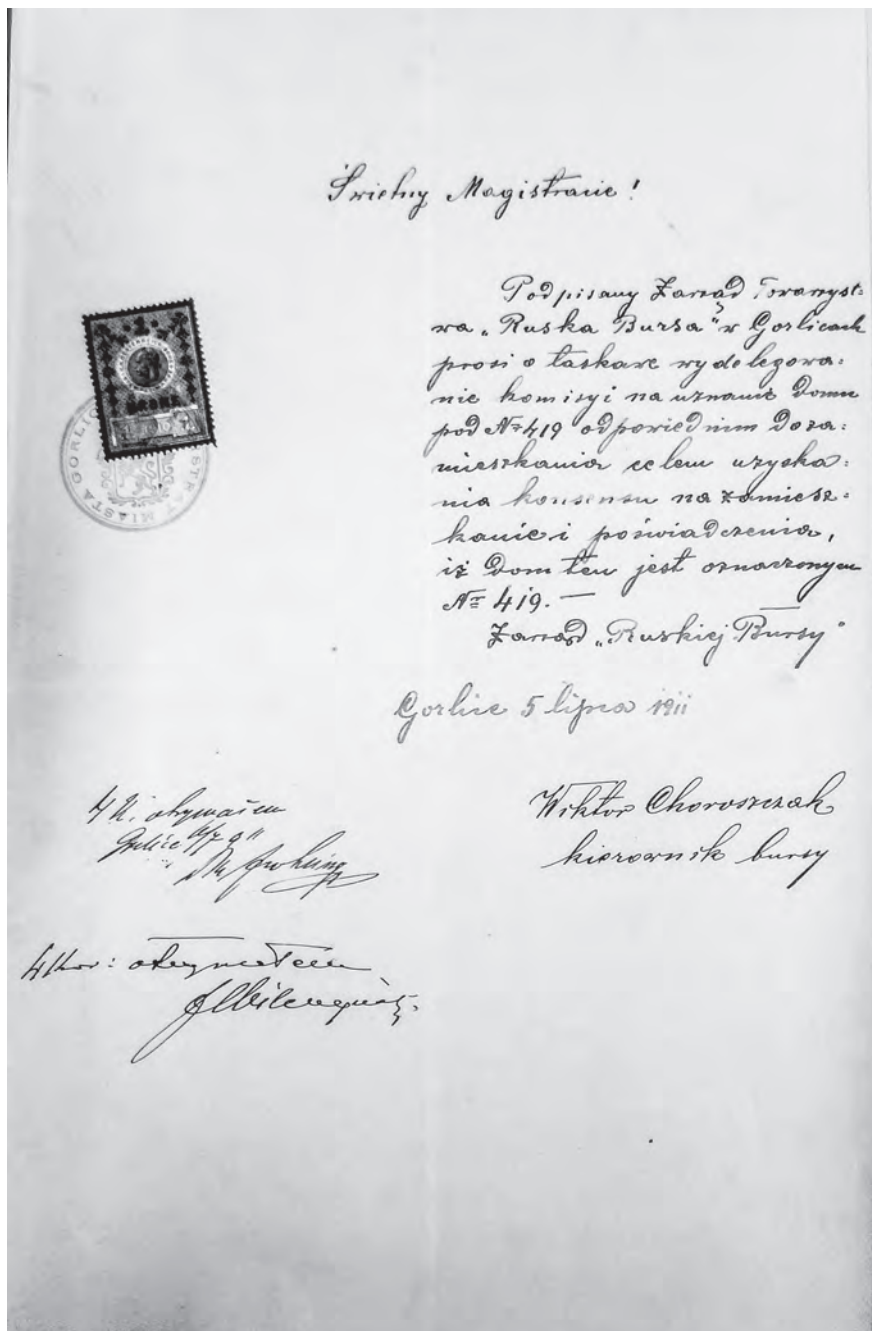 Świetny Magistracie!
Podpisany Zarząd Towarzyst=
wa „Ruska Bursa" w Gorlicach
prosi o łaskawe wydelegowa=
nie komisyi na uznanie domu
pod № 419 odpowiednim do za=
mieszkania celem uzyska=
nia konsensu na zamiesz=
kanie i poświadczenia,
iż dom ten jest oznaczonym
№ 419. —
Zarząd „Ruskiej Bursy"
Gorlice 5 lipca 1911
Wiktor Choroszczak
kierownik bursy
1
MIASTA GORLIC
4 K. otrzymałem
Gorlice
4 Kor: otrzymałem